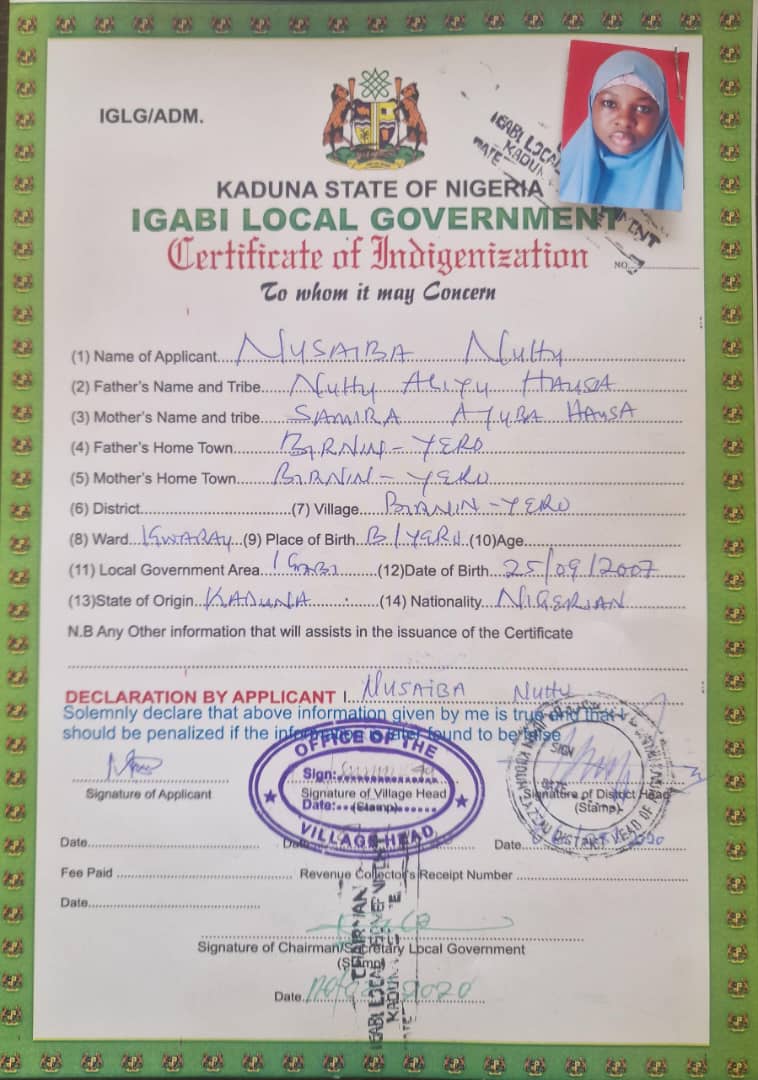 IGLG/ADM.
KADUNA STATE OF NIGERIA
IGABI LOCAL GOVERNMENT
Certificate of Indigenization
NO.
To whom it may Concern
(1) Name of Applicant....NUSAIBA Nuhu
(2) Father's Name and Tribe.....Nuhu ALIYU HAUSA
(3) Mother's Name and tribe.....SAMIRA AYUBA HAUSA
(4) Father's Home Town.....BIRNIN-YERO
(5) Mother's Home Town.....BIRNIN-YERO
(6) District..........(7) Village....BIRNIN-YERO
(8) Ward...(9) Place of Birth..B/YERO.(10)Age..........
(11) Local Government Area...IGABI......(12)Date of Birth...25/09/2007
(13)State of Origin..KADUNA..........(14) Nationality...NIGERIAN
N.B Any Other information that will assists in the issuance of the Certificate
DECLARATION BY APPLICANT I.. NUSAIBA Nuhu
Solemnly declare that above information given by me is true and that I
should be penalized if the information is later found to be false
OFFICE OF THE
Sign:
Signature of Applicant
Signature of Village Head
Signature of District Head
Date:
(Stamp)
(Stamp)
VILLAGE HEAD
Date
Date
Date 2020
Fee Paid ............ Revenue Collector's Receipt Number ............
Date
Signature of Chairman/Secretary Local Government
(Stamp)
Date 2020
CHAIRMAN
IGABI LOCAL GOVERNMENT
KADUNA
DATE